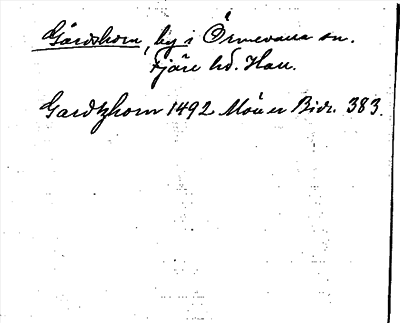 Gårdshorn, by i Örmevalla sn.
Fjäre hd. Hall.
Gardtzhorn 1492 Möller Bidr. 383.